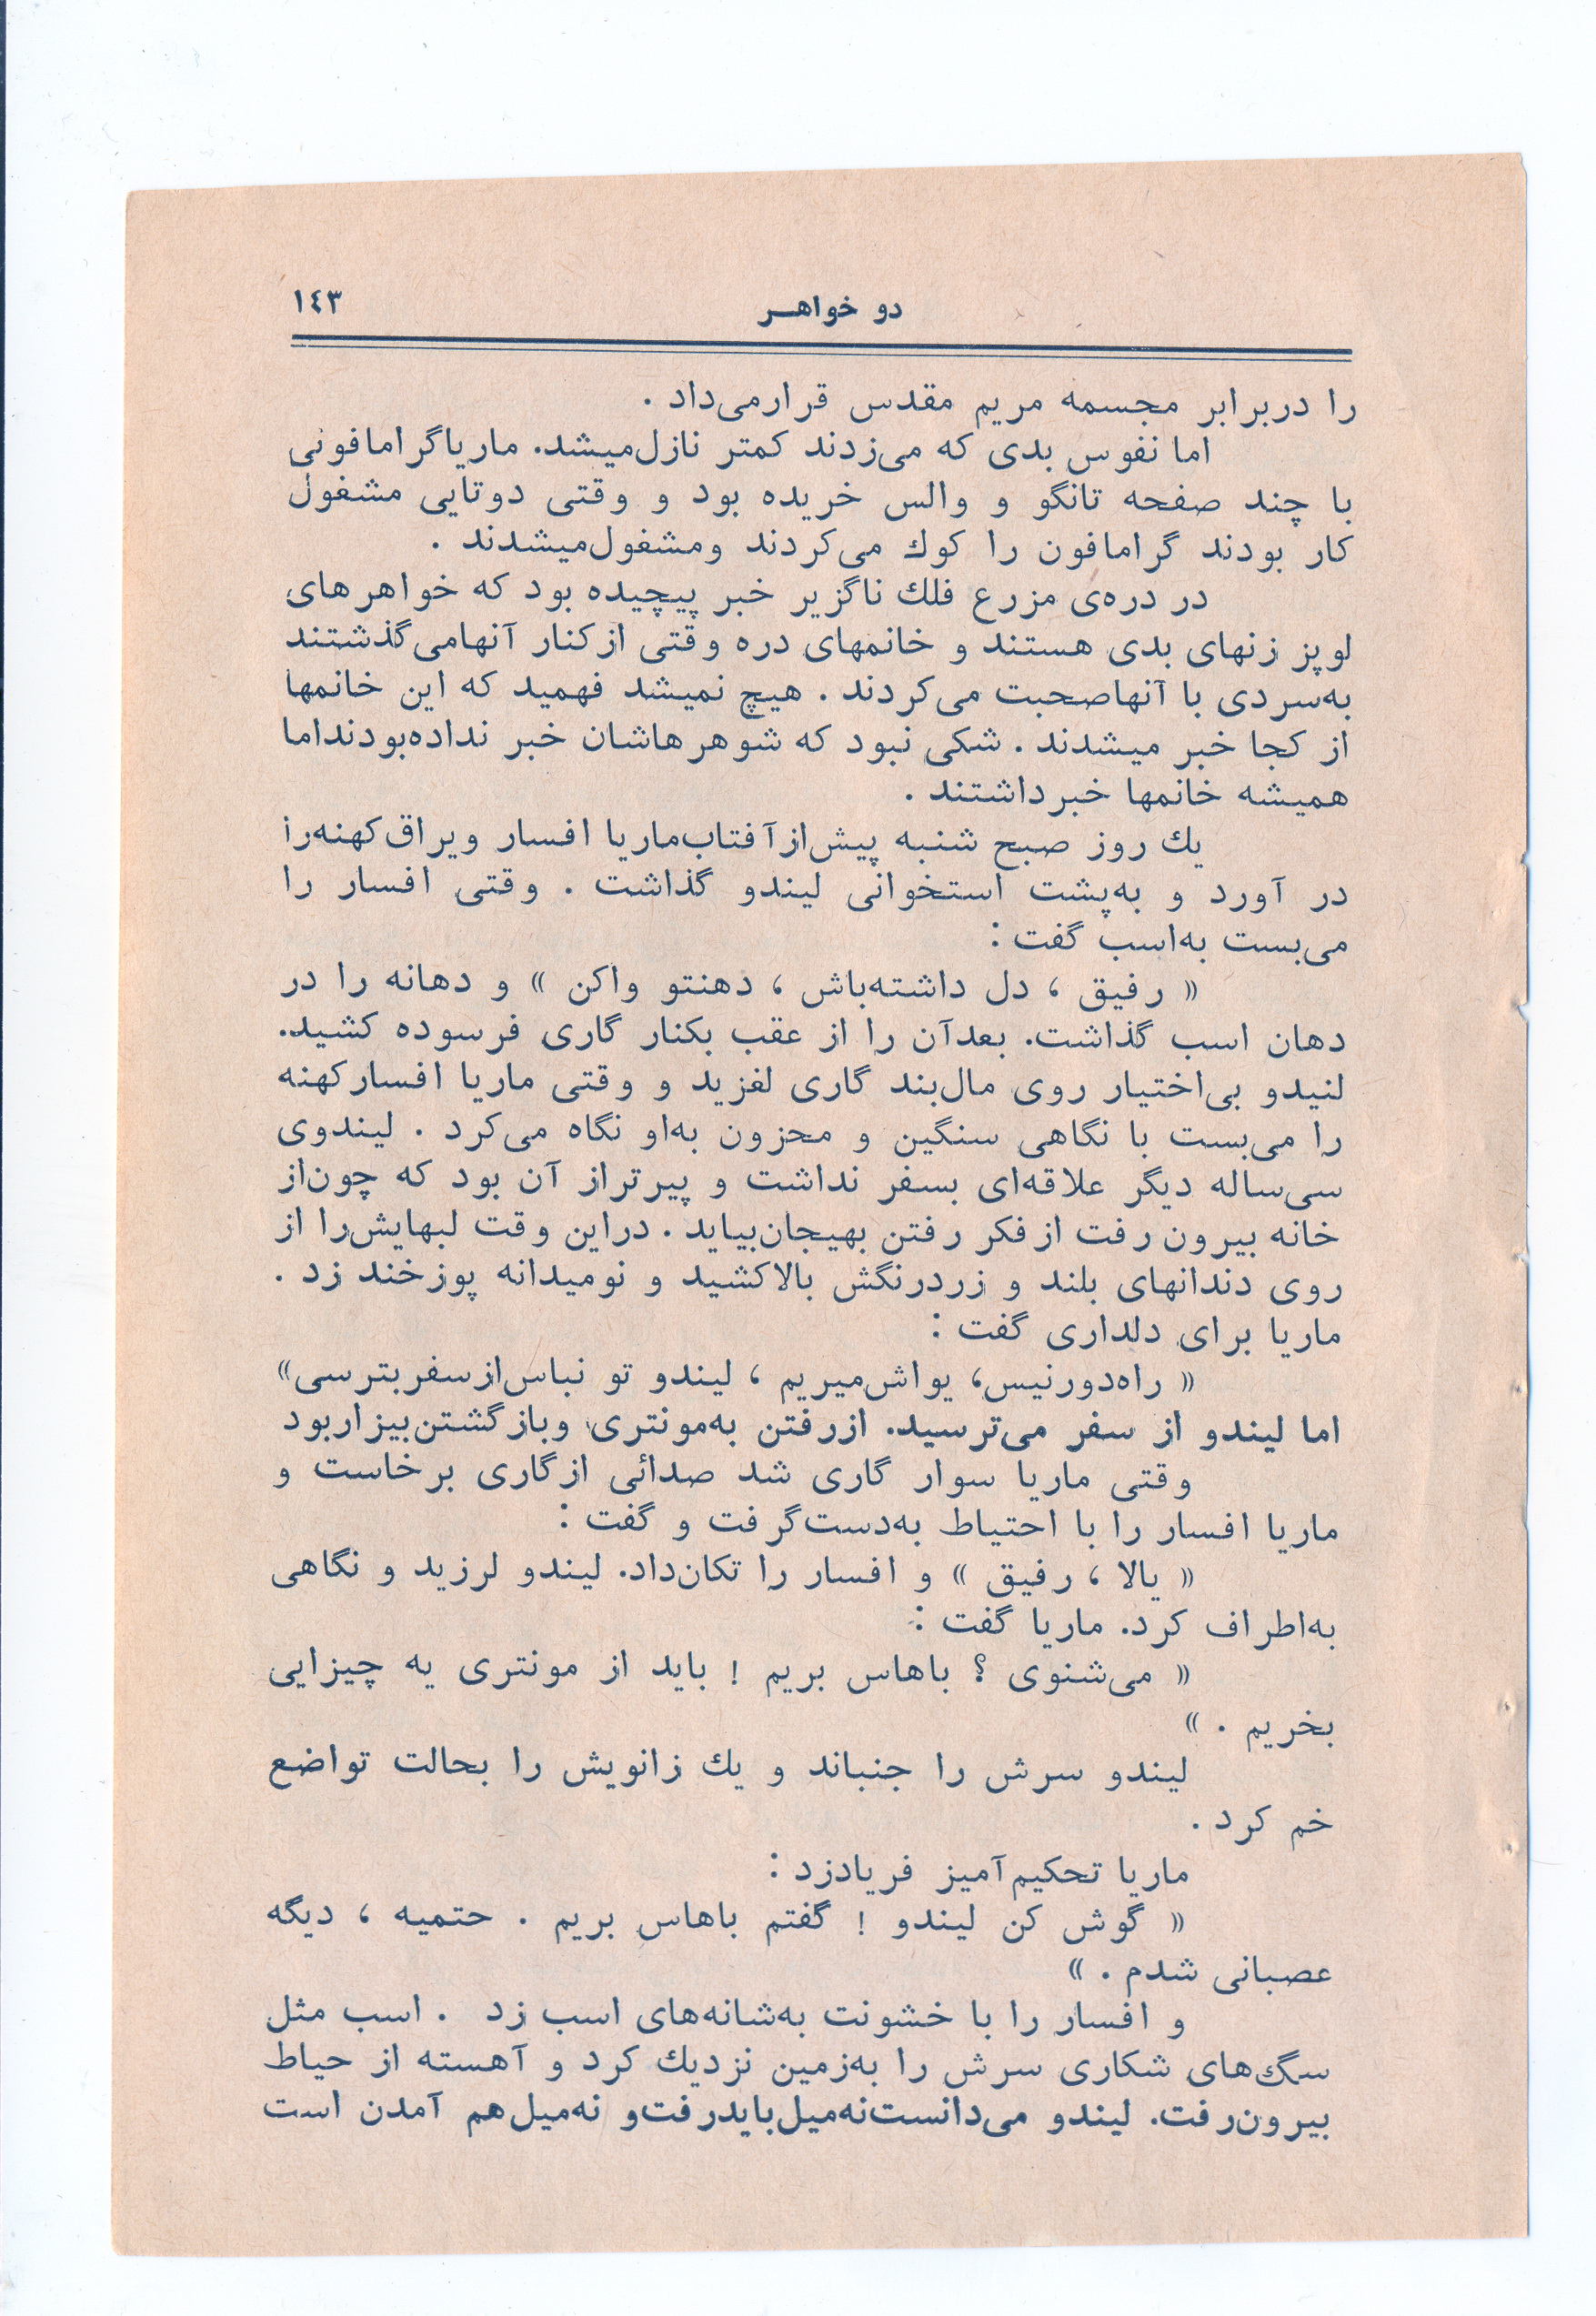 دو خواهر ١٤٣
را دربرابر مجسمه مریم مقدس قرارمی‌داد .
اما نفوس بدی که می‌زدند کمتر نازل‌میشد. ماریاگرامافونی
با چند صفحه تانگو و والس خریده بود و وقتی دوتایی مشغول
کار بودند گرامافون را کوك می‌کردند ومشغول‌میشدند .
در دره‌ی مزرع فلك ناگزیر خبر پیچیده بود که خواهرهای
لوپز زنهای بدی هستند و خانمهای دره وقتی ازکنار آنهامی‌گذشتند
به‌سردی با آنهاصحبت می‌کردند . هیچ نمیشد فهمید که این خانمها
از کجا خبر میشدند . شکی نبود که شوهرهاشان خبر نداده‌بودنداما
همیشه خانمها خبرداشتند .
یك روز صبح شنبه پیش‌ازآفتاب‌ماریا افسار ویراق‌کهنه‌را
در آورد و به‌پشت استخوانی لیندو گذاشت . وقتی افسار را
می‌بست به‌اسب گفت :
« رفیق ، دل داشته‌باش ، دهنتو واکن » و دهانه را در
دهان اسب گذاشت. بعدآن را از عقب بکنار گاری فرسوده کشید.
لنیدو بی‌اختیار روی مال‌بند گاری لغزید و وقتی ماریا افسارکهنه
را می‌بست با نگاهی سنگین و محزون به‌او نگاه می‌کرد . لیندوی
سی‌ساله دیگر علاقه‌ای بسفر نداشت و پیرتراز آن بود که چون‌از
خانه بیرون رفت ازفکر رفتن بهیجان‌بیاید . دراین وقت لبهایش‌را از
روی دندانهای بلند و زردرنگش بالاکشید و نومیدانه پوزخند زد .
ماریا برای دلداری گفت :
« راه‌دورنیس، یواش‌میریم ، لیندو تو نباس‌ازسفربترسی»
اما لیندو از سفر می‌ترسید. ازرفتن به‌مونتری وبازگشتن‌بیزاربود
وقتی ماریا سوار گاری شد صدائی ازگاری برخاست و
ماریا افسار را با احتیاط به‌دست‌گرفت و گفت :
« یالا ، رفیق » و افسار را تکان‌داد. لیندو لرزید و نگاهی
به‌اطراف کرد. ماریا گفت :
« می‌شنوی ؟ باهاس بریم ! باید از مونتری یه چیزایی
بخریم . »
لیندو سرش را جنباند و یك زانویش را بحالت تواضع
خم کرد .
ماریا تحکیم‌آمیز فریادزد :
« گوش کن لیندو ! گفتم باهاس بریم . حتمیه ، دیگه
عصبانی شدم . »
و افسار را با خشونت به‌شانه‌های اسب زد . اسب مثل
سگ‌های شکاری سرش را به‌زمین نزدیك کرد و آهسته از حیاط
بیرون‌رفت. لیندو می‌دانست‌نه‌میل‌بایدرفت‌و نه‌میل‌هم آمدن است